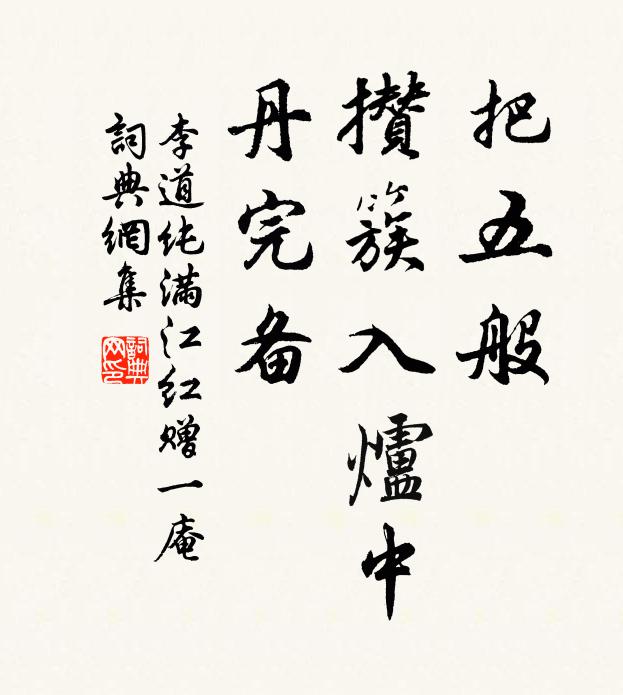 把五般
攢簇入爐中
丹完备
李道纯满江红赠一庵
詞典網集
詞典網印